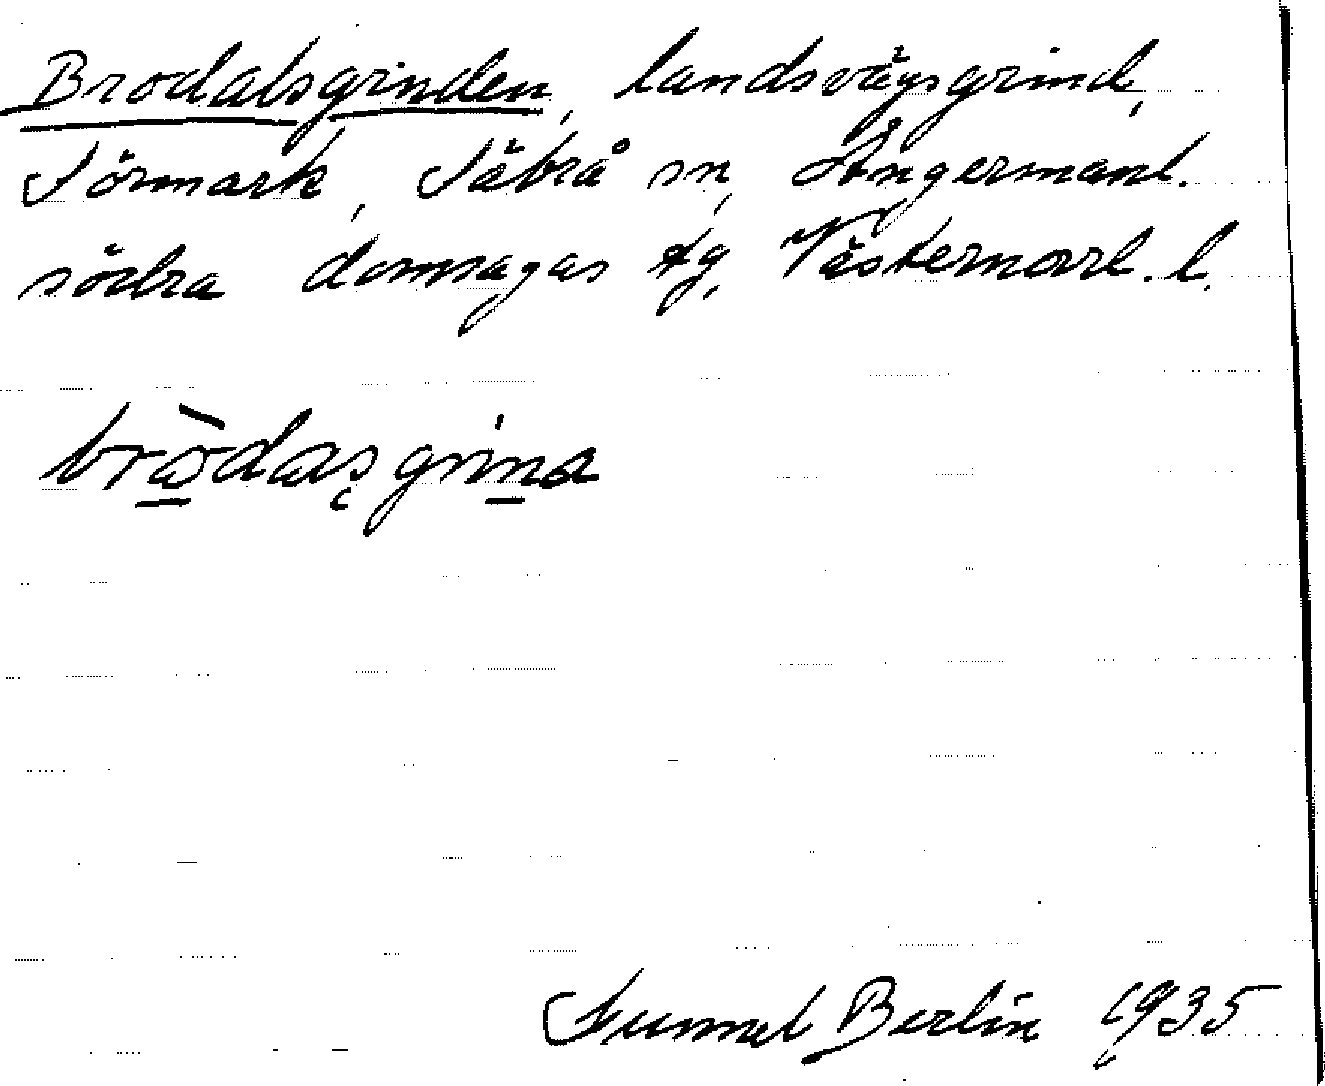 Brodalsgrinden, landsvägsgrind,
Sörmark, Säbrå sn, Ångermanl.
södra domsagas tg, Västernorrl. l.
brödasgrina
Gunnel Berlin 1935